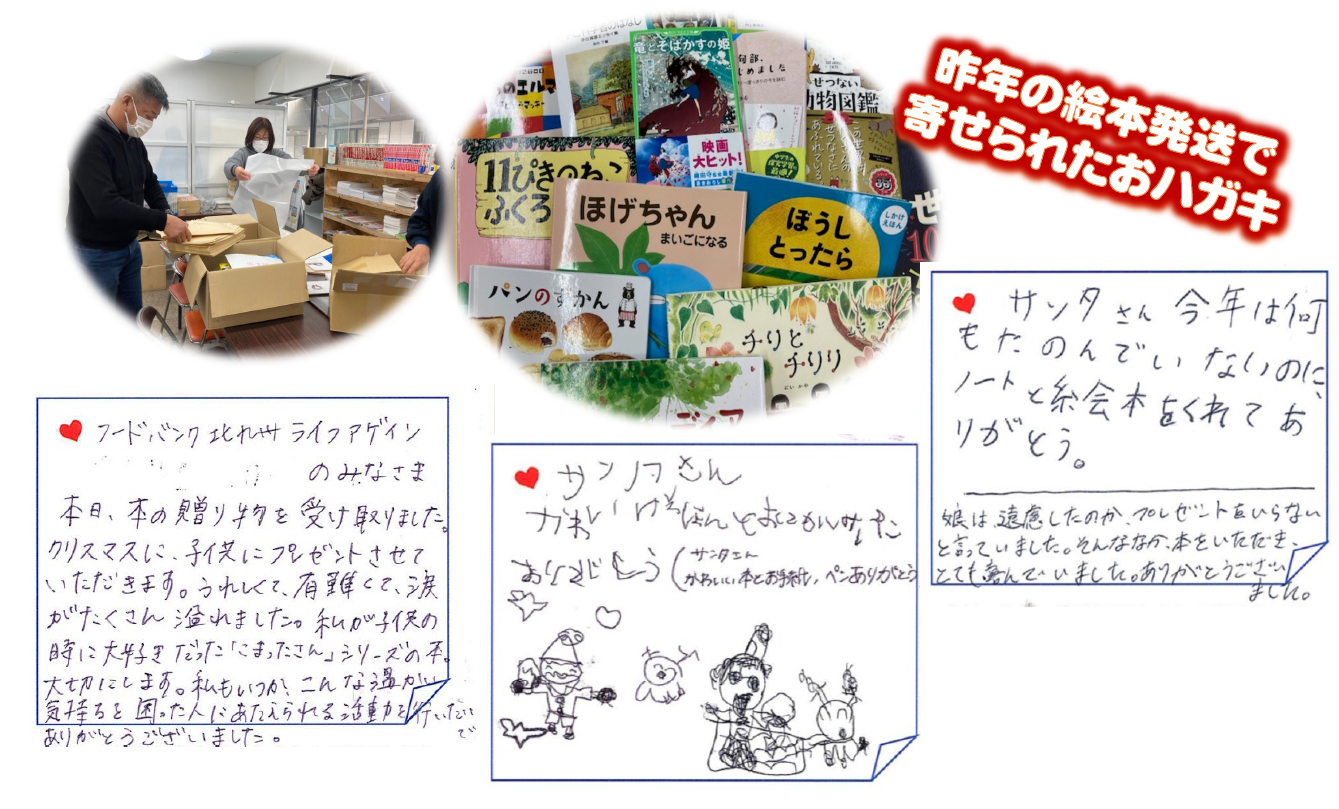 昨年の絵本発送で
寄せられたおハガキ
竜とそばかすの姫
映画
大ヒット!
動物図鑑
11ぴきのねこ
ふくろ
ほげちゃん
まいごになる
ぼうし
とったら
しかけ
えほん
パンのずかん
チリと
チリリ
フードバンク北九州 ライフアゲイン
のみなさま
本日、本の贈り物を受け取りました。
クリスマスに、子供にプレゼントさせて
いただきます。うれしくて、有難くて、涙
がたくさん溢れました。私が子供の
時に大好きだった「こまったさん」シリーズの本。
大切にします。私もいつか、こんな温かい
気持ちを困った人にあたえられる活動を行いたい
で
ありがとうございました。
サンタさん
ありがとう
(サンタさん
かわいい本とお手紙、ペンありがとう
サンタさん 今年は何
もたのんでいないのに、
ノートと絵本をくれてあ
りがとう。
娘は、遠慮したのか、プレゼントをいらない
と言っていました。そんななか、本をいただき、
とても喜んでいました。ありがとうござい
ました。